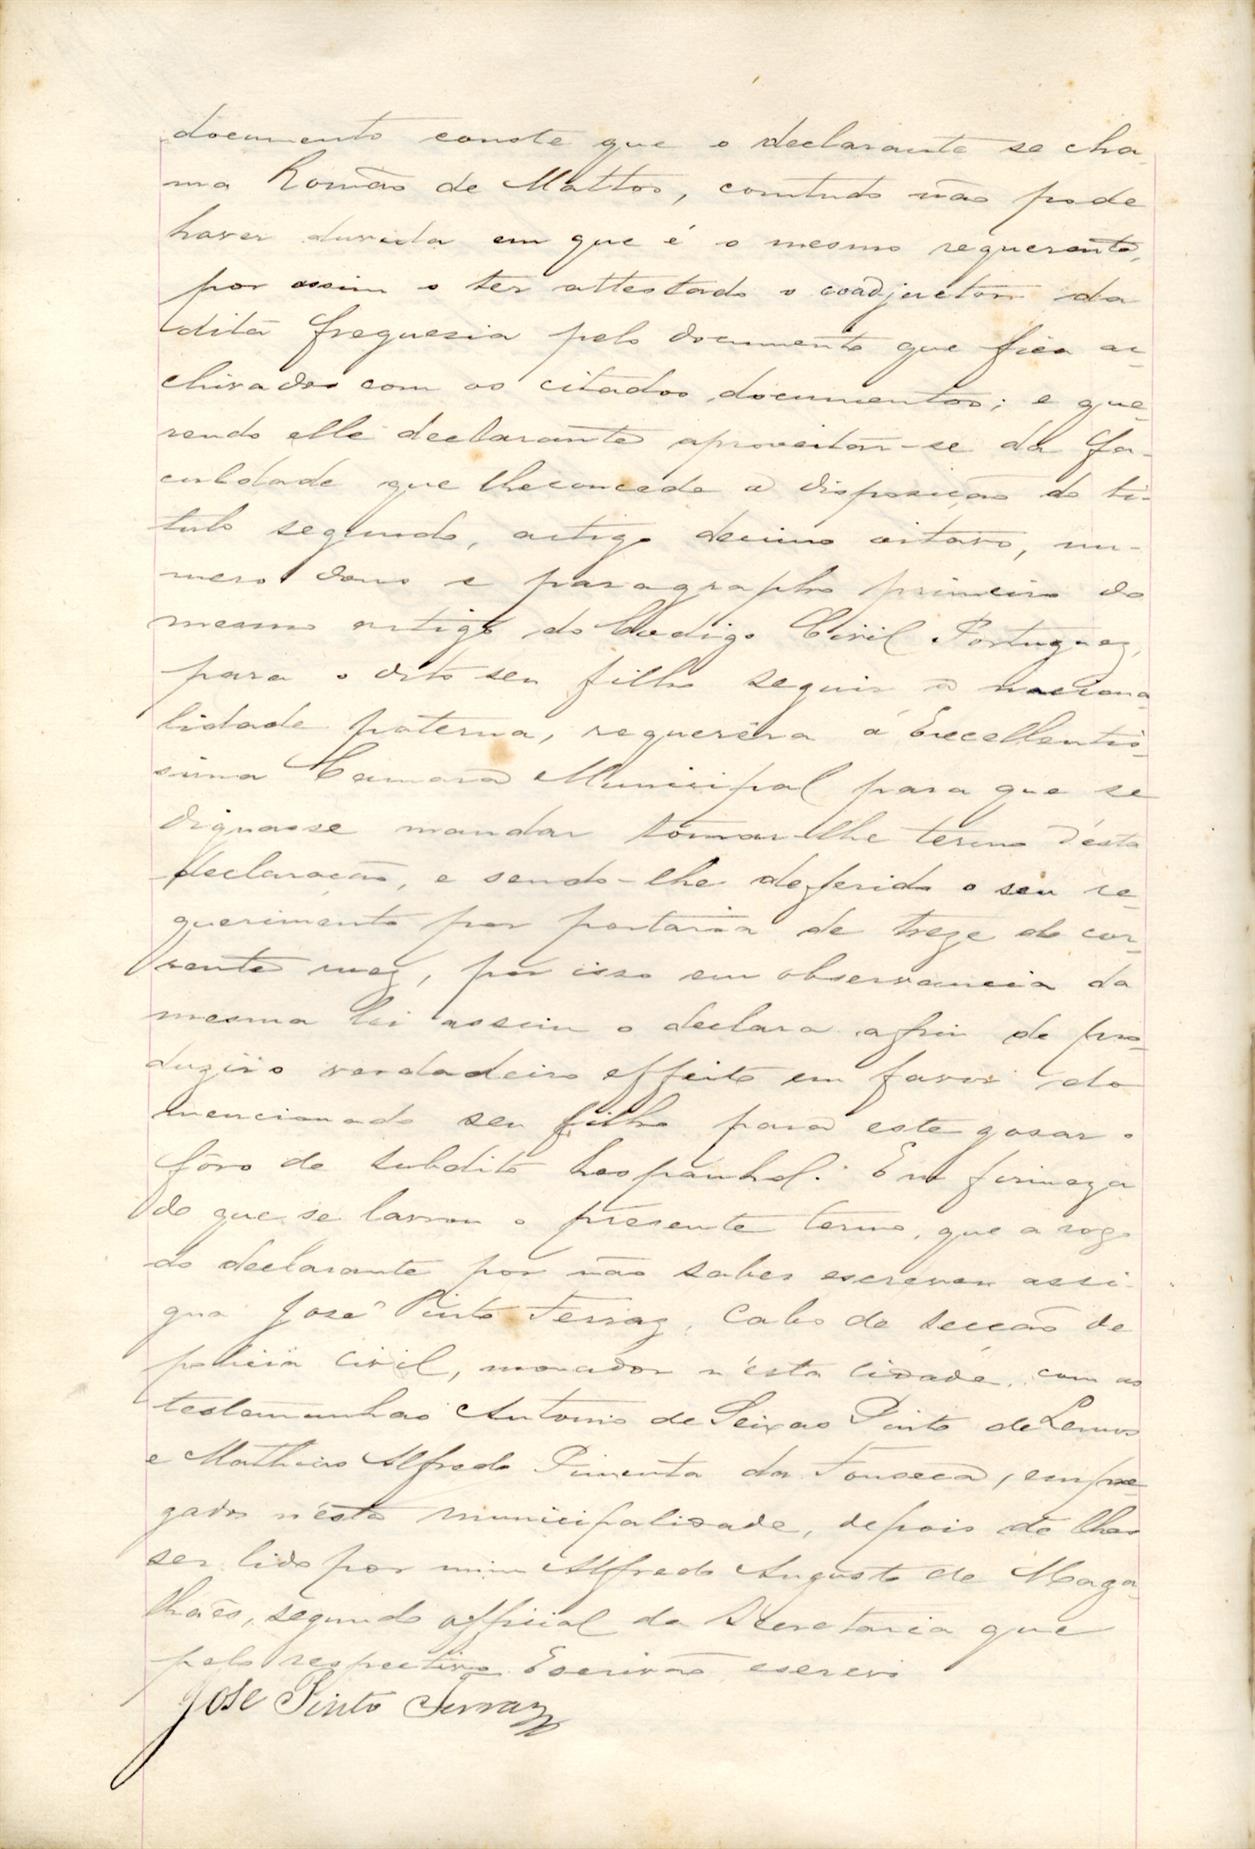 documento conste que o declarante se cha-
ma Romão de Mattos, comtudo não pode
haver duvida em que é o mesmo requerente,
por assim o ter attestado o coadjuctor da
dita freguesia pelo documento que fica ar-
chivado com os citados documentos; e que-
rendo elle declarante aproveitar-se da fa-
culdade que lhe concede a disposição do ti-
tulo segundo, artigo decimo oitavo, nu-
mero dous e paragrapho primeiro do
mesmo artigo do Codigo Civil Portuguez,
para o dito seu filho seguir a naciona-
lidade paterna, requerêra á Excellentis-
sima Camara Municipal para que se
dignasse mandar tomar-lhe termo d'esta
declaração, e sendo-lhe deferido o seu re-
querimento por portaria de treze do cor-
rente mez, por isso em observancia da
mesma lei assim o declara afim de pro-
duzir o verdadeiro effeito em favor do
mencionado seu filho para este gosar o
fôro de subdito hespanhol. Em firmeza
do que se lavrou o presente termo, que a rogo
do declarante por não saber escrever assi-
gna José Pinto Ferraz, Cabo de secção de
policia civil, morador n'esta cidade, com as
testemunhas Antonio de Seixas Pinto de Lemos
e Mathias Alfredo Pimenta da Fonseca, empre-
gados n'esta municipalidade, depois de lhes
ser lido por mim Alfredo Augusto de Maga-
lhães, segundo official da Secretaria que
pelo respectivo Escrivão escrevi
José Pinto Ferraz